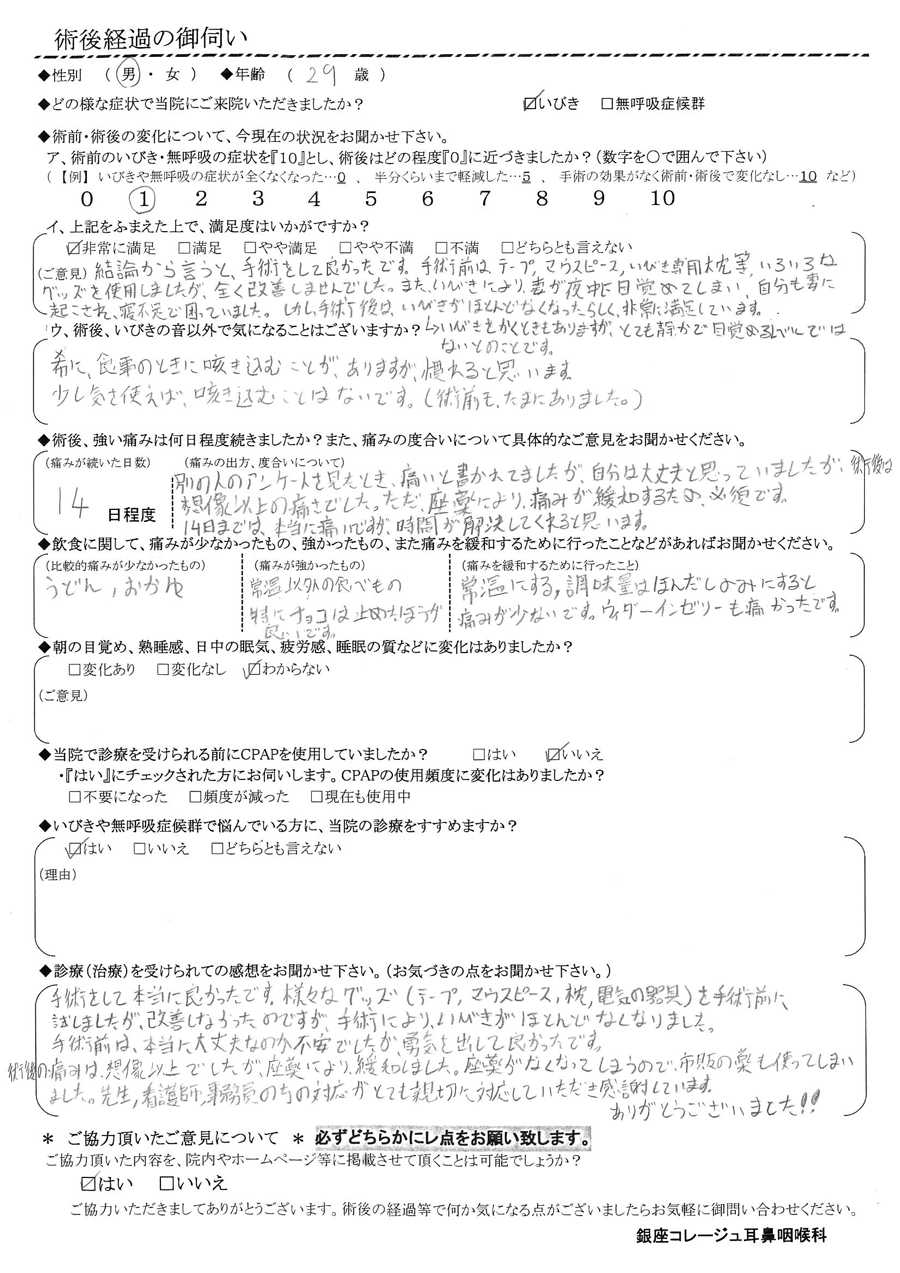 術後経過の御伺い
◆性別 （ 男 ・ 女 ） ◆年齢 （ 29 歳 ）
◆どの様な症状で当院にご来院いただきましたか？ ☑いびき □無呼吸症候群
◆術前・術後の変化について、今現在の状況をお聞かせ下さい。
ア、術前のいびき・無呼吸の症状を『10』とし、術後はどの程度『0』に近づきましたか？（数字を〇で囲んで下さい）
（ 【例】 いびきや無呼吸の症状が全くなくなった…0 、 半分くらいまで軽減した…5 、 手術の効果がなく術前・術後で変化なし…10 など）
0 1 2 3 4 5 6 7 8 9 10
イ、上記をふまえた上で、満足度はいかがですか？
☑非常に満足 □満足 □やや満足 □やや不満 □不満 □どちらとも言えない
（ご意見） 結論から言うと、手術をして良かったです。手術前は、テープ，マウスピース，いびき専用枕等，いろいろな
グッズを使用しましたが、全く改善しませんでした。また、いびきにより、妻が夜中に目覚めてしまい、自分も妻に
起こされ、寝不足で困っていました。しかし手術後は、いびきがほとんどなくなったらしく、非常に満足しています。
ウ、術後、いびきの音以外で気になることはございますか？
いびきをかくときもありますが、とても静かで目覚めるレベルでは
ないとのことです。
希に、食事のときに咳き込むことが、ありますが、慣れると思います。
少し気を使えば、咳き込むことはないです。（術前も、たまにありました。）
◆術後、強い痛みは何日程度続きましたか？また、痛みの度合いについて具体的なご意見をお聞かせください。
（痛みが続いた日数） （痛みの出方、度合いについて）
14 日程度
別の人のアンケートを見たとき、痛いと書かれてましたが、自分は大丈夫と思っていましたが、術後は
想像以上の痛さでした。ただ、座薬により、痛みが緩和するため、必須です。
14日までは、本当に痛いですが、時間が解決してくれると思います。
◆飲食に関して、痛みが少なかったもの、強かったもの、また痛みを緩和するために行ったことなどがあればお聞かせください。
（比較的痛みが少なかったもの） （痛みが強かったもの） （痛みを緩和するために行ったこと）
うどん，おかゆ
常温以外の食べもの
特にチョコは止めたほうが
良いです。
常温にする，調味量はほんだしのみにすると
痛みが少ないです。ウィダーインゼリーも痛かったです。
◆朝の目覚め、熟睡感、日中の眠気、疲労感、睡眠の質などに変化はありましたか？
□変化あり □変化なし ☑わからない
（ご意見）
◆当院で診療を受けられる前にCPAPを使用していましたか？ □はい ☑いいえ
・『はい』にチェックされた方にお伺いします。CPAPの使用頻度に変化はありましたか？
□不要になった □頻度が減った □現在も使用中
◆いびきや無呼吸症候群で悩んでいる方に、当院の診療をすすめますか？
☑はい □いいえ □どちらとも言えない
（理由）
◆診療（治療）を受けられての感想をお聞かせ下さい。（お気づきの点をお聞かせ下さい。）
手術をして本当に良かったです。様々なグッズ（テープ，マウスピース，枕，電気の器具）を手術前に
試しましたが、改善しなかったのですが、手術により、いびきがほとんどなくなりました。
手術前は、本当に大丈夫なのか不安でしたが、勇気を出して良かったです。
術後の痛みは、想像以上でしたが、座薬により、緩和しました。座薬がなくなってしまうので、市販の薬も使ってしまい
ました。先生，看護師，事務員の方の対応がとても親切に対応していただき感謝しています。
ありがとうございました!!
＊ ご協力頂いたご意見について ＊ 必ずどちらかにレ点をお願い致します。
ご協力頂いた内容を、院内やホームページ等に掲載させて頂くことは可能でしょうか？
☑はい □いいえ
ご協力いただきましてありがとうございます。術後の経過等で何か気になる点がございましたらお気軽に御問い合わせください。
銀座コレージュ耳鼻咽喉科